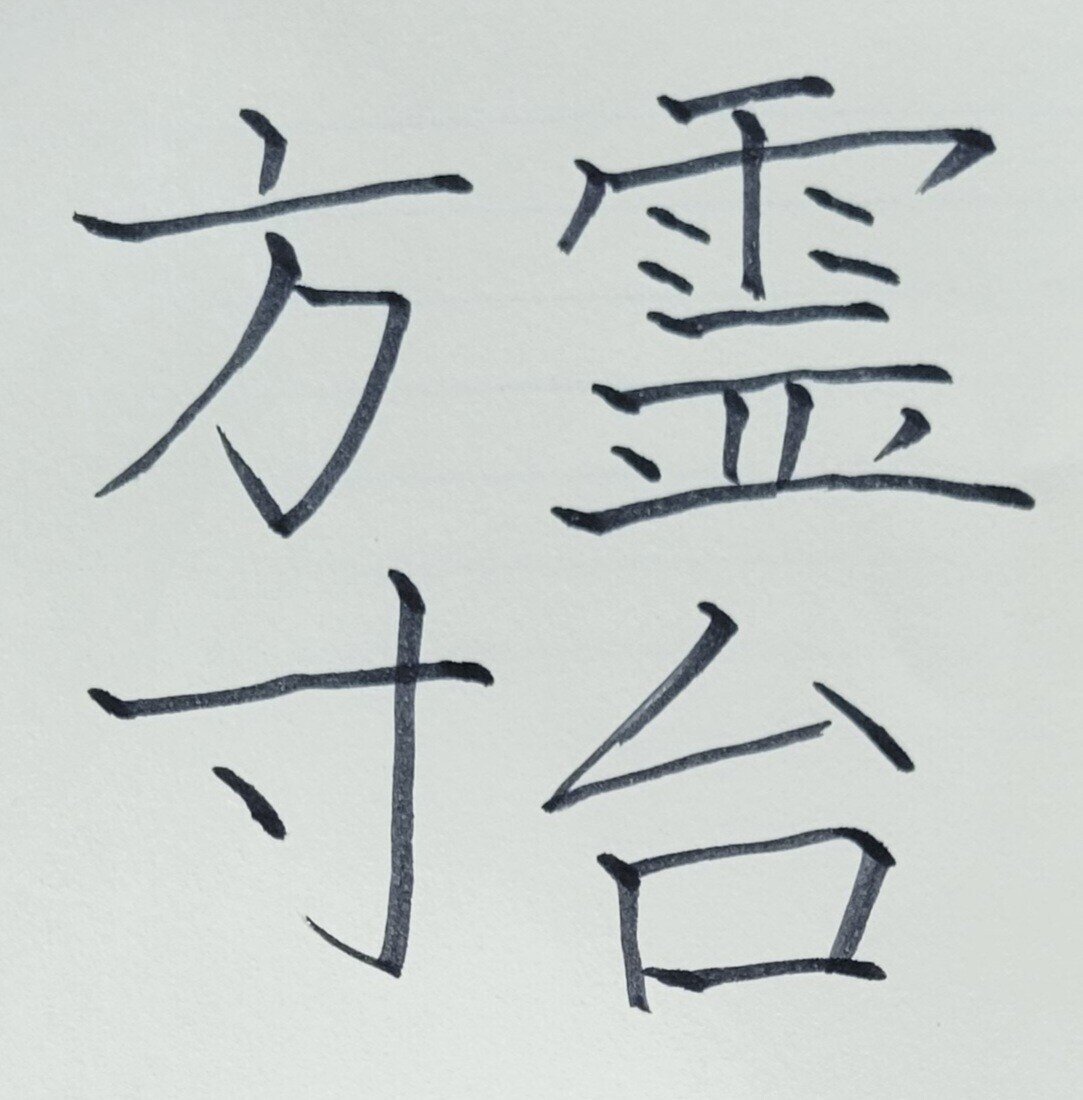 霊台
方寸